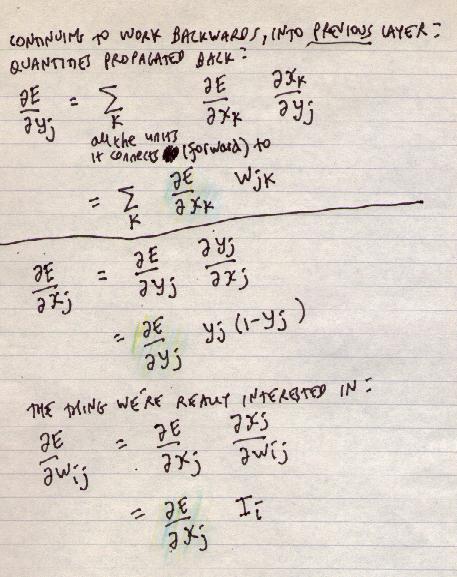 CONTINUING TO WORK BACKWARDS, INTO PREVIOUS LAYER:
QUANTITIES PROPAGATED BACK:
∂E/∂yj = Σ_K ∂E/∂xK ∂xK/∂yj
all the units
it connects (forward) to
= Σ_K ∂E/∂xK WjK
∂E/∂xj = ∂E/∂yj ∂yj/∂xj
= ∂E/∂yj yj (1-yj)
THE THING WE'RE REALLY INTERESTED IN:
∂E/∂wij = ∂E/∂xj ∂xj/∂wij
= ∂E/∂xj Ii